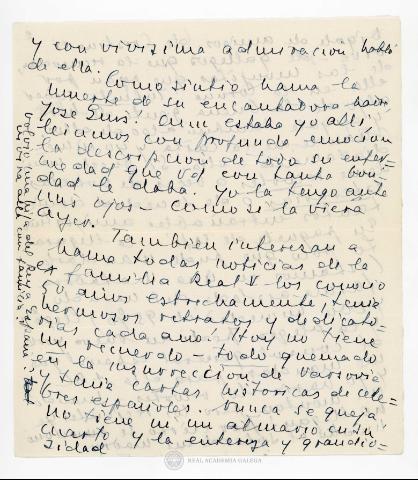 y con vivisima admiracion habló
de ella.
Como sintio mama la
muerte de su encantadora
Jose Luis! Aun estaba yo alli,
leimos con profunda emoción
la descripcion de toda su enfer=
medad que Vd con tanta bon
dad le daba. Yo la tengo ante
mis ojos - como si la viera
Ayer.
Tambien interesan a
mama todas noticias de la
familia Real los conocio
50 años estrechamente, tenia
hermosos retratos y dedicato=
rias cada año! Hoy no tiene
un recuerdo - todo quemado
en la insurreccion de Varsovia
y tenia cartas historicas de cele=
bres españoles. Nunca se queja
no tiene ni un almario en su
cuarto y la entereza y grandio=
sidad
hija del Rey a España
vivirá allí con familia?
REAL ACADEMIA GALEGA